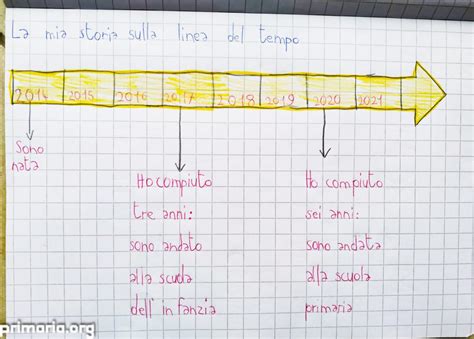 La mia storia sulla linea del tempo
2014 2015 2016 2017 2018 2019 2020 2021
Sono
nata
Ho compiuto
tre anni:
sono andato
alla scuola
dell'infanzia
Ho compiuto
sei anni:
sono andata
alla scuola
primaria
primaria.org